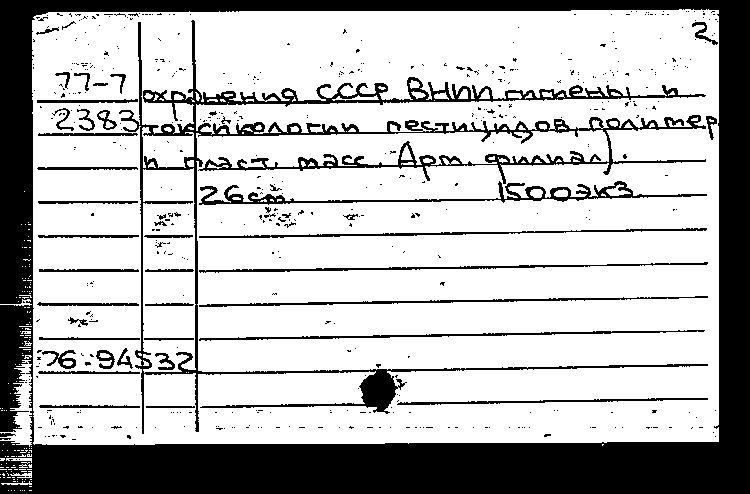 2
77-7 охранения СССР. ВНИИ гигиены и
2383 токсикологии пестицидов, полимер
и пласт. масс. Арм. филиал).
26см. 1500экз
76-94532